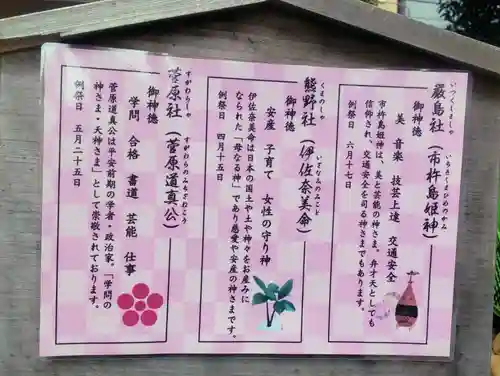 いつくしましゃ
いちきしまひめのかみ
厳島社(市杵島姫神)
御神徳
美 音楽 技芸上達 交通安全
市杵島姫神は、美と芸能の神さま。弁才天としても
信仰され、交通安全を司る神さまでもあります。
例祭日 六月十七日
くまのしゃ
いざなみのみこと
熊野社(伊佐奈美命)
御神徳
安産 子育て 女性の守り神
伊佐奈美命は日本の国土や土や神々をお産みに
なられた「母なる神」であり慈愛や安産の神さまです。
例祭日 四月十五日
すがわらしゃ
すがわらのみちざねこう
菅原社(菅原道真公)
御神徳
学問 合格 書道 芸能 仕事
菅原道真公は平安前期の学者・政治家。「学問の
神さま・天神さま」として崇敬されております。
例祭日 五月二十五日